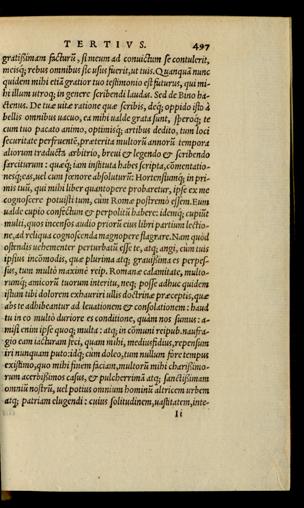 TERTIVS. 497
gratißimam facturũ, si meum ad conuictum se contulerit,
meisq́; rebus omnibus sic usus fuerit, ut tuis. Quanquã nunc
quidem mihi etiã gratior tuo testimonio est futurus, qui mi-
hi illum utroq; in genere scribendi laudas. Sed de Bino ha-
ctenus. De tuæ uitæ ratione quæ scribis, deq́; oppido isto à
bellis omnibus uacuo, ea mihi ualde grata sunt, speroq́; te
cum tuo pacato animo, optimisq́; artibus dedito, tum loci
securitate perfruentẽ, præterita multorũ annorũ tempora
aliorum traducta arbitrio, breui & legendo & scribendo
sarciturum: quæq́; iam instituta habes scripta, cõmentatio-
nesq́; eas, uel cum fœnore absoluturũ: Hortensiũmq́; in pri-
mis tuũ, qui mihi liber quantopere probaretur, ipse ex me
cognoscere potuisti tum, cum Romæ postremò essem. Eum
ualde cupio confectũm & perpolitũ habere: idemq́; cupiũt
multi, quos incensos audio priorũ eius libri partium lectio-
ne, ad reliqua cognoscenda magnopere flagrare. Nam quòd
ostendis uehementer perturbatũ esse te, atq; angi, cum tuis
ipsius incõmodis, quæ plurima atq; grauißima es perpes-
sus, tum multò maximè reip. Romanæ calamitate, multo-
rumq́; amicorũ tuorum interitu, neq; posse adhuc quidem
istum tibi dolorem exhauriri ullis doctrinæ præceptis, quæ
abs te adhibeantur ad leuationem & consolationem: haud
tu in eo multò duriore es conditione, quàm nos sumus: a-
misi enim ipse quoq; multa: atq; in cõmuni reipub. naufra-
gio eam iacturam feci, quam mihi, mediusfidius, repensum
iri nunquam puto: idq́; cum doleo, tum nullum fore tempus
existimo, quo mihi finem faciam, multorũ mihi charißimo-
rum acerbißimos casus, & pulcherrimã atq; sanctißimam
omniũ nostrũ, uel potius omnium hominũ altricem urbem
atq; patriam elugendi: cuius solitudinem, uastitatem, inte-
Ii